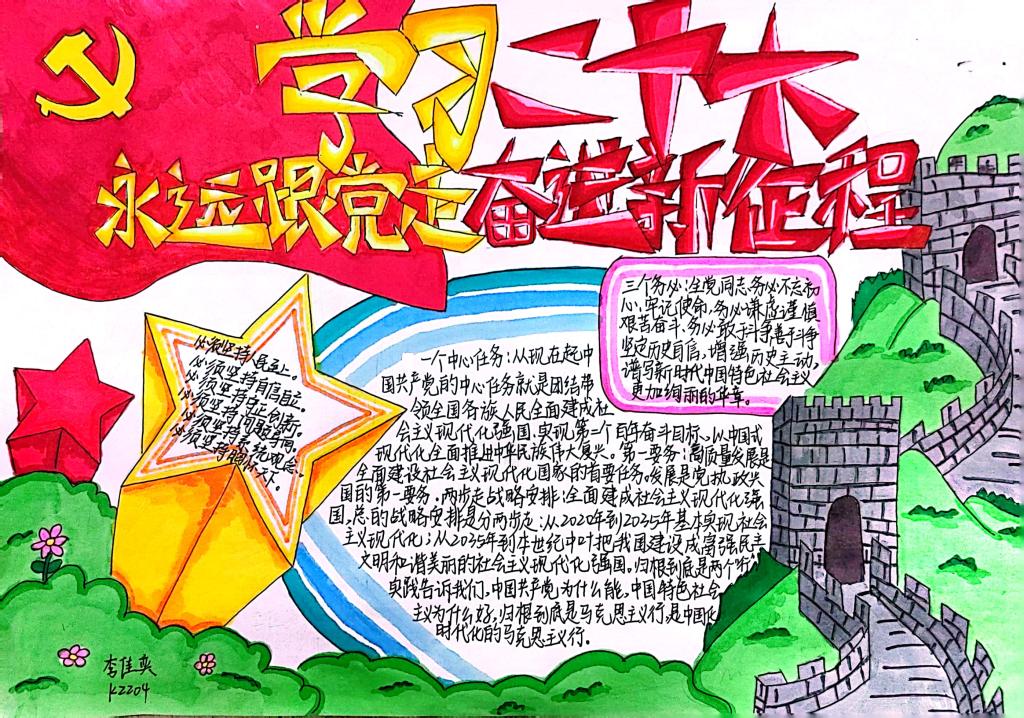 学习二十大
永远跟党走 奋进新征程
三个务必:全党同志务必不忘初
心,牢记使命,务必谦虚谨慎
艰苦奋斗,务必敢于斗争善于斗争
坚定历史自信,增强历史主动,
谱写新时代中国特色社会主义
更加绚丽的华章。
必须坚持人民至上。
必须坚持自信自立。
必须坚持守正创新。
必须坚持问题导向。
必须坚持系统观念。
必须坚持胸怀天下。
一个中心任务:从现在起,中
国共产党的中心任务就是团结带
领全国各族人民全面建成社
会主义现代化强国、实现第二个百年奋斗目标、以中国式
现代化全面推进中华民族伟大复兴。第一要务:高质量发展是
全面建设社会主义现代化国家的首要任务,发展是党执政兴
国的第一要务。两步走战略安排:全面建成社会主义现代化强
国,总的战略安排是分两步走:从2020年到2035年基本实现社会
主义现代化;从2035年到本世纪中叶把我国建设成富强民主
文明和谐美丽的社会主义现代化强国。归根到底是两个行:
实践告诉我们,中国共产党为什么能,中国特色社会
主义为什么好,归根到底是马克思主义行,是中国化
时代化的马克思主义行。
李佳奕
KZ204